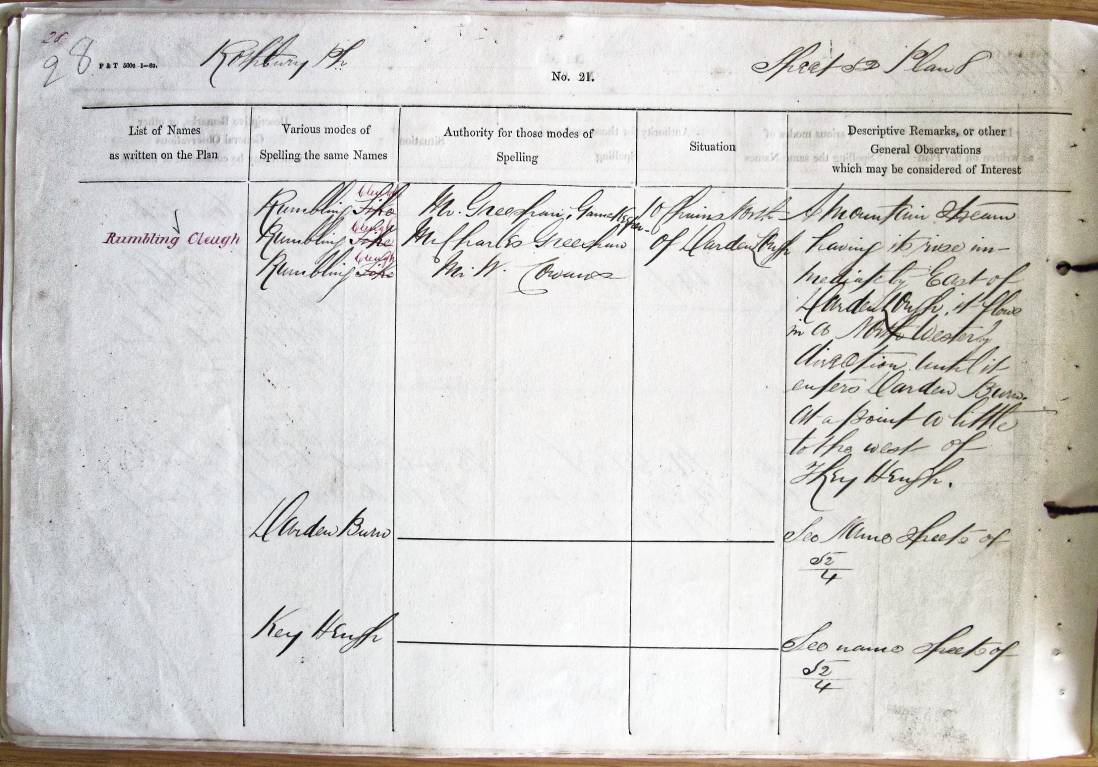 28
28 P & T 500c 1-60. Rothbury Ph No. 21. Sheet 52 Plan 8
List of Names
as written on the Plan
Various modes of
Spelling the same Names
Authority for those modes of
Spelling
Situation
Descriptive Remarks, or other
General Observations
which may be considered of Interest
Rumbling Cleugh
Cleugh
Rumbling Sike
Cleugh
Rumbling Sike
Cleugh
Rumbling Sike
Mr. Greenham, Gamekeeper
Mr. Charles
Mr. W.
10 Chains North
of Darden Lough
A mountain stream
having its rise im-
mediately East of
Darden Lough, it flows
in a North Westerly
direction until it
enters Darden Burn
at a point a little
to the west of
Key Heugh.
Darden Burn
See Name Sheets of
52
4
Key Heugh
See name Sheets of
52
4